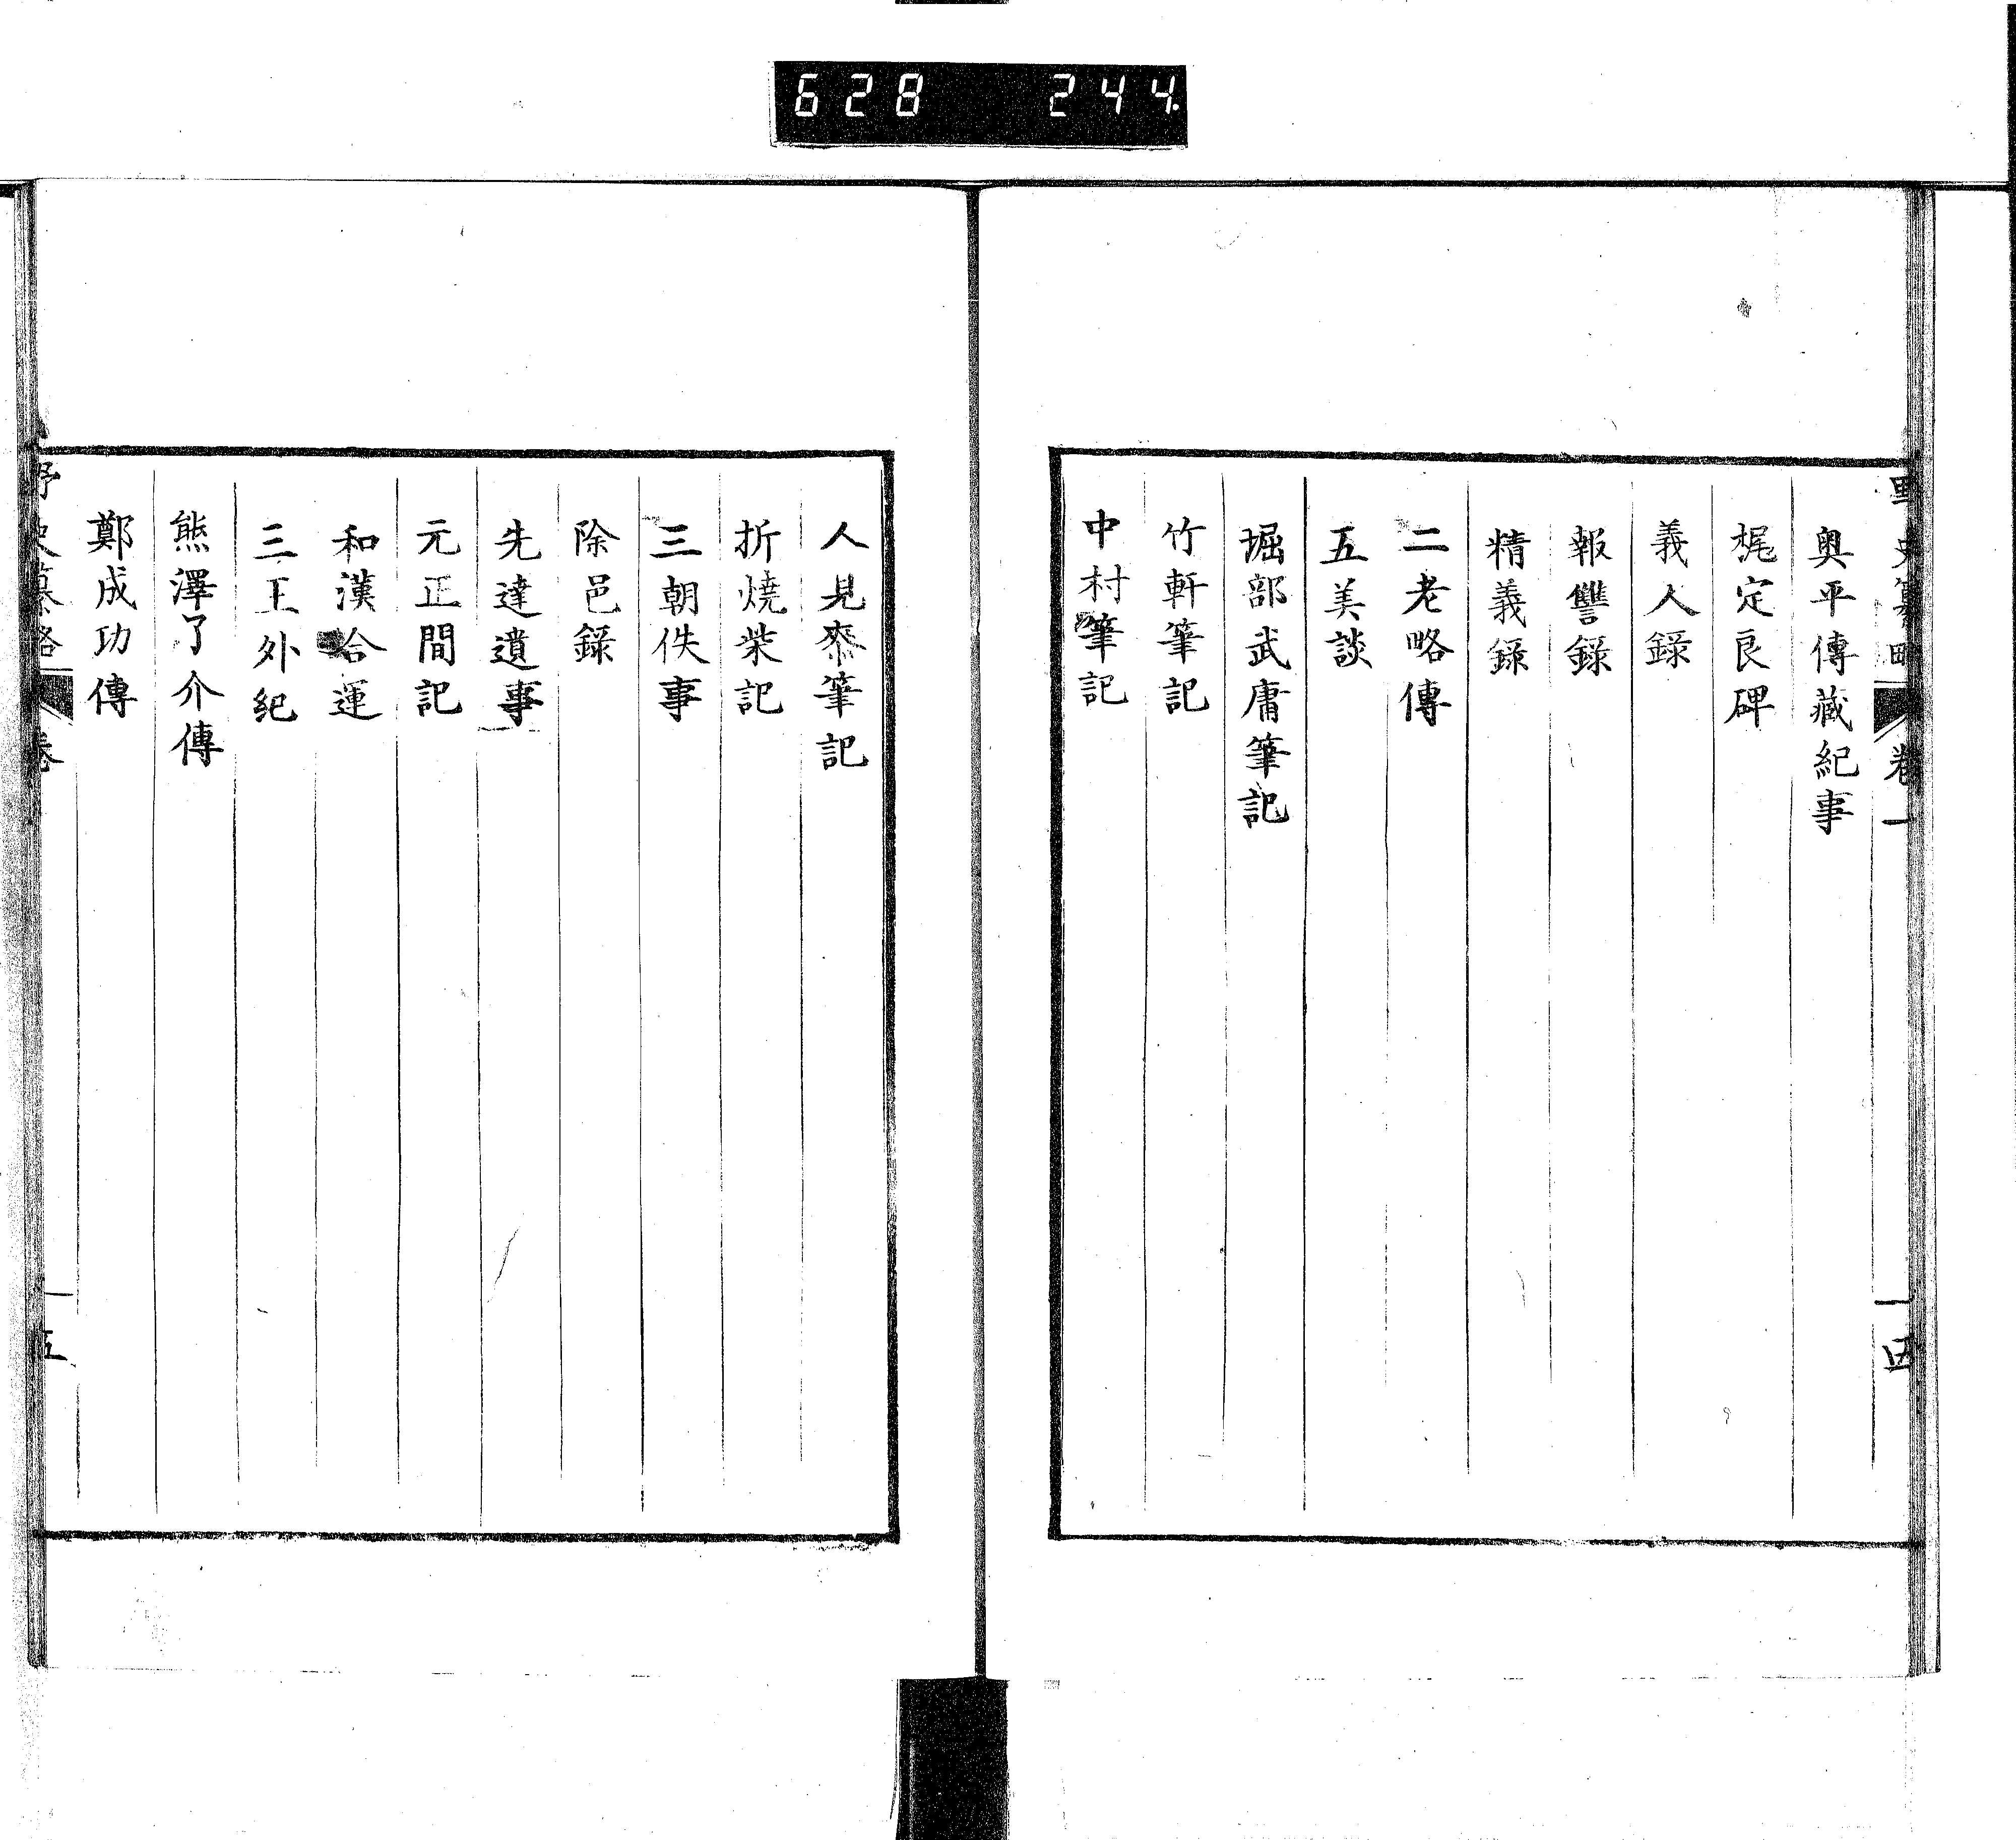 628 244.
野史纂略 卷一 一四
奥平傳藏紀事
梶定良碑
義人錄
報讐錄
精義錄
二老略傳
五美談
堀部武庸筆記
竹軒筆記
中村筆記
人見黍筆記
折燒柴記
三朝佚事
除邑錄
先達遺事
元正間記
和漢合運
三王外紀
熊澤了介傳
鄭成功傳
野史纂略 卷 一五